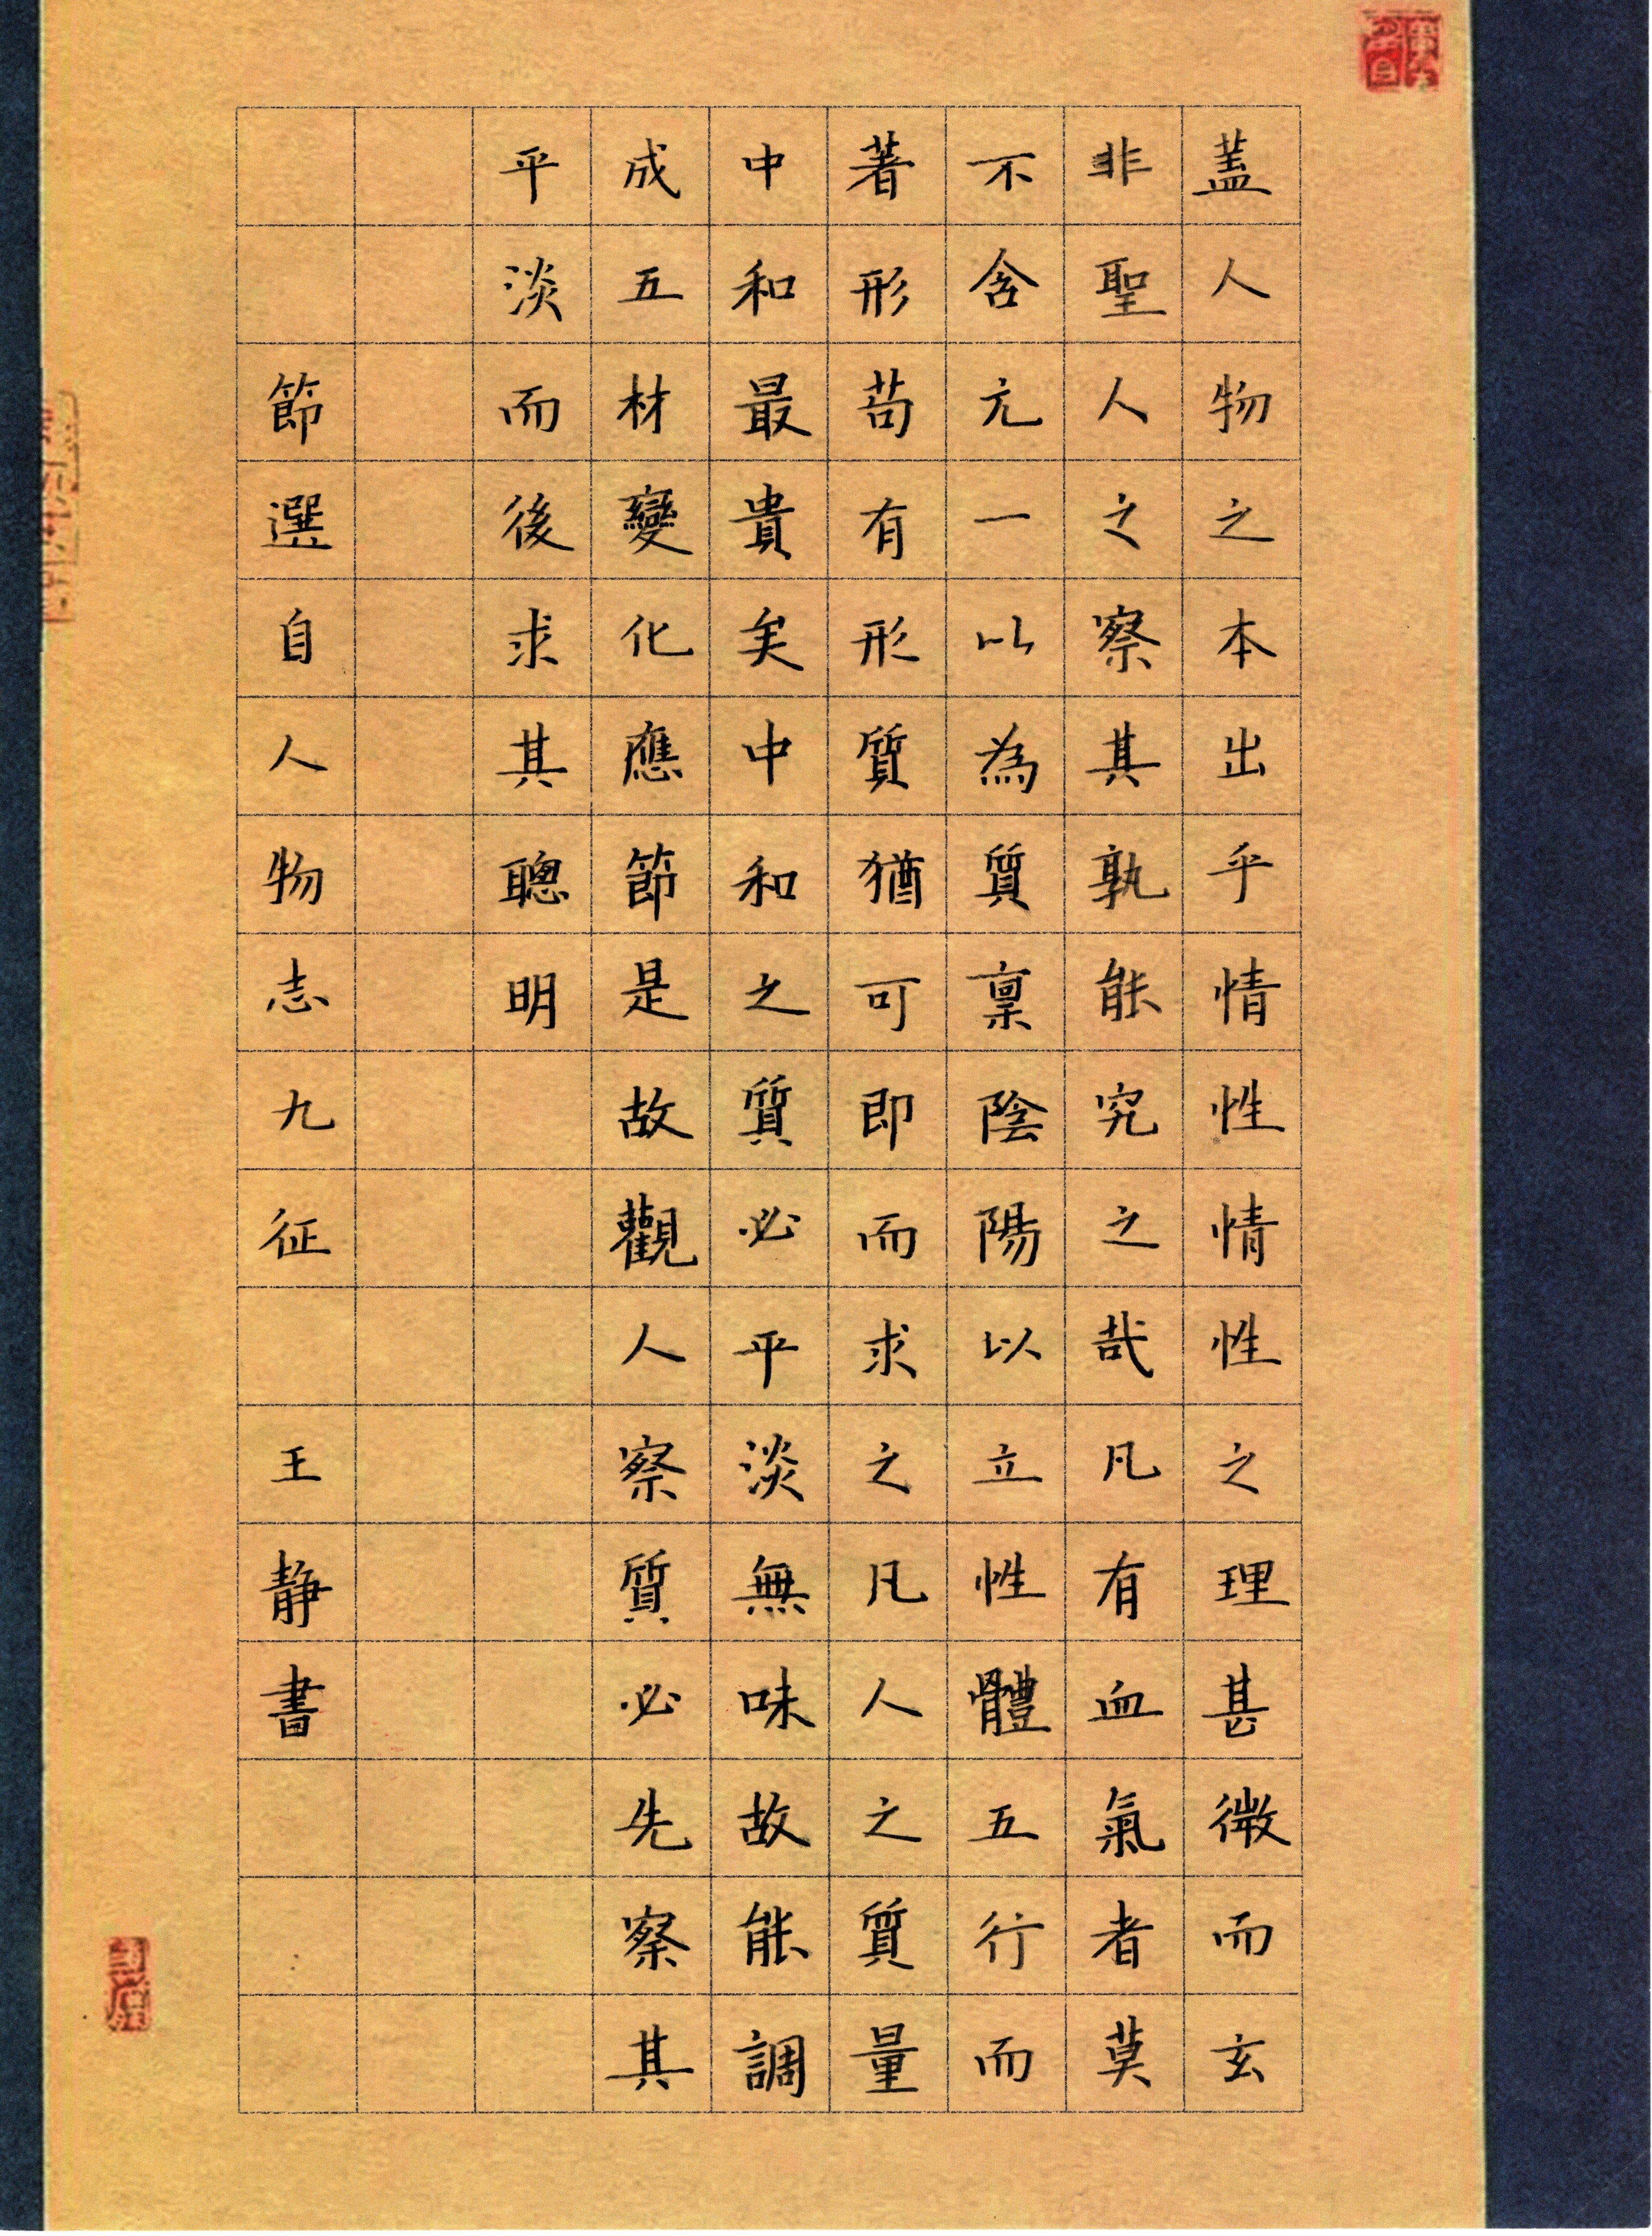 蓋人物之本出乎情性情性之理甚微而玄
非聖人之察其孰能究之哉凡有血氣者莫
不含元一以為質稟陰陽以立性體五行而
著形苟有形質猶可即而求之凡人之質量
中和最貴矣中和之質必平淡無味故能調
成五材變化應節是故觀人察質必先察其
平淡而後求其聰明
節選自人物志九征 王静書